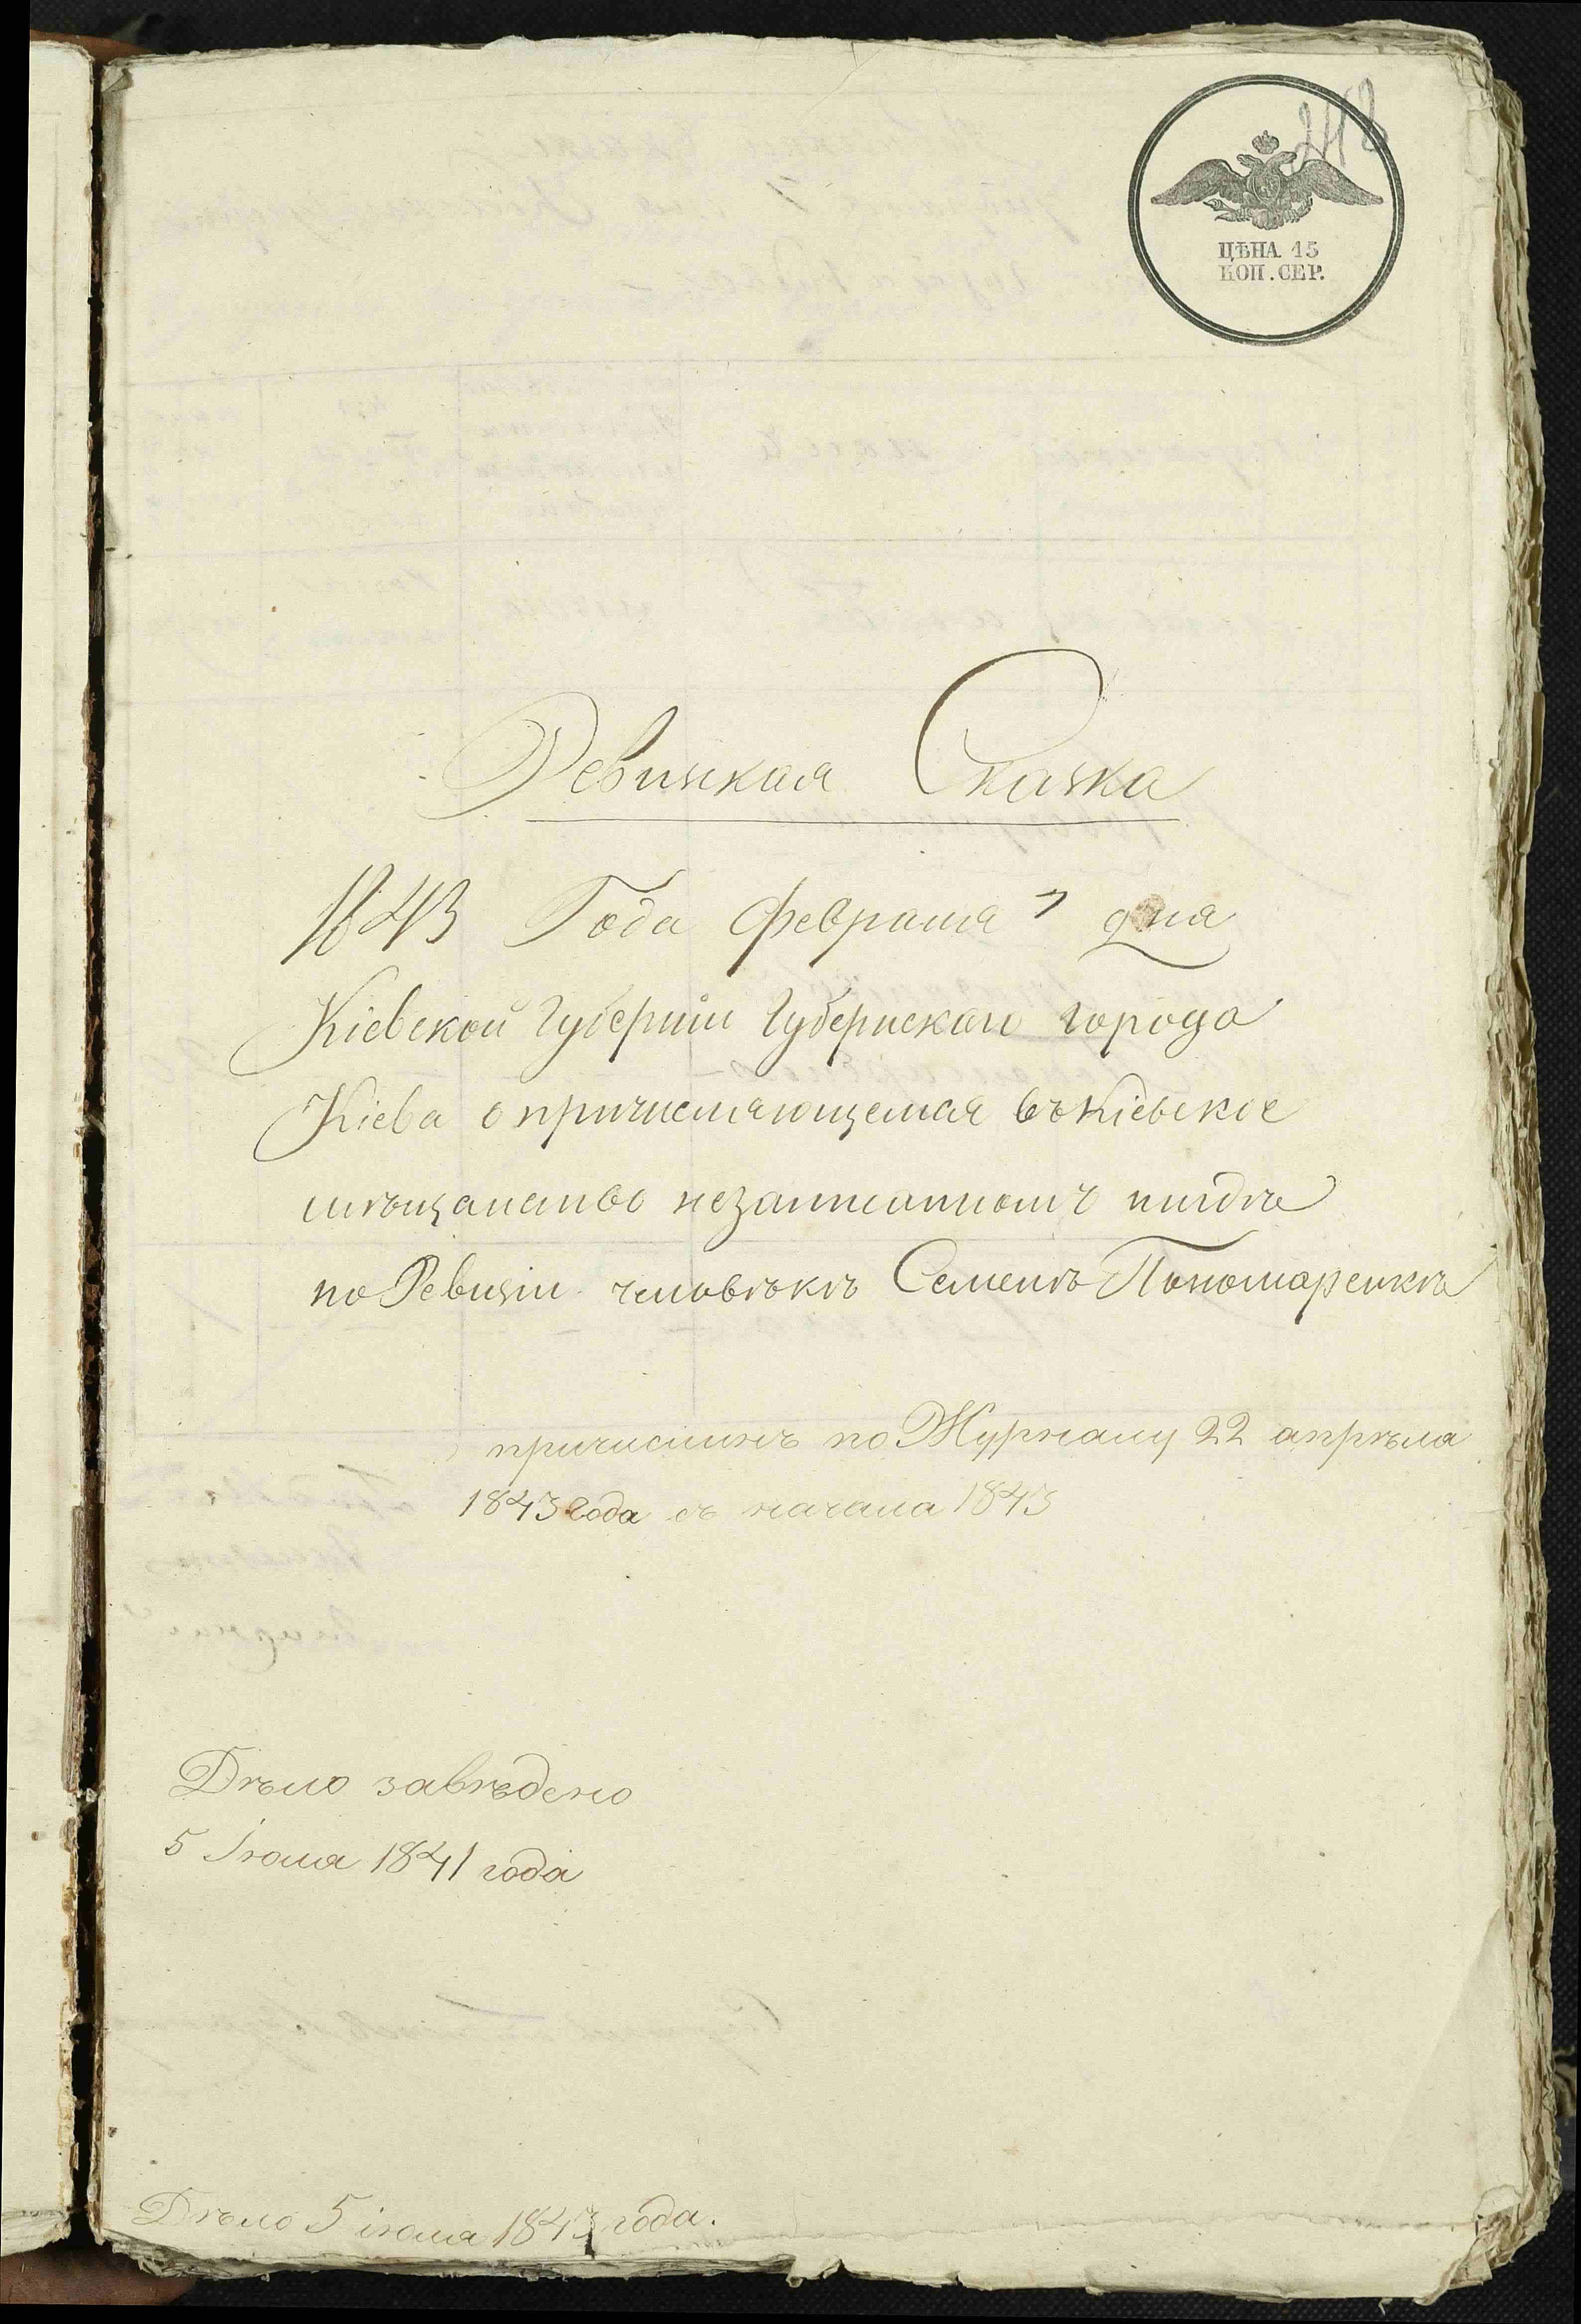 248
ЦѢНА 15
КОП. СЕР.
Ревизкая Сказка
1843 Года февраля 7 дня
Кіевской Губерніи Губернскаго города
Кіева о причисляющемся въ Кіевское
мѣщанство незаписанномъ нигдѣ
по Ревизіи человѣкѣ Семенѣ Пономаренкѣ
причисленъ по Журналу 22 апрѣля
1843 года съ начала 1843
Дѣло завѣдено
5 Іюля 1841 года
Дѣло 5 іюля 1843 года.